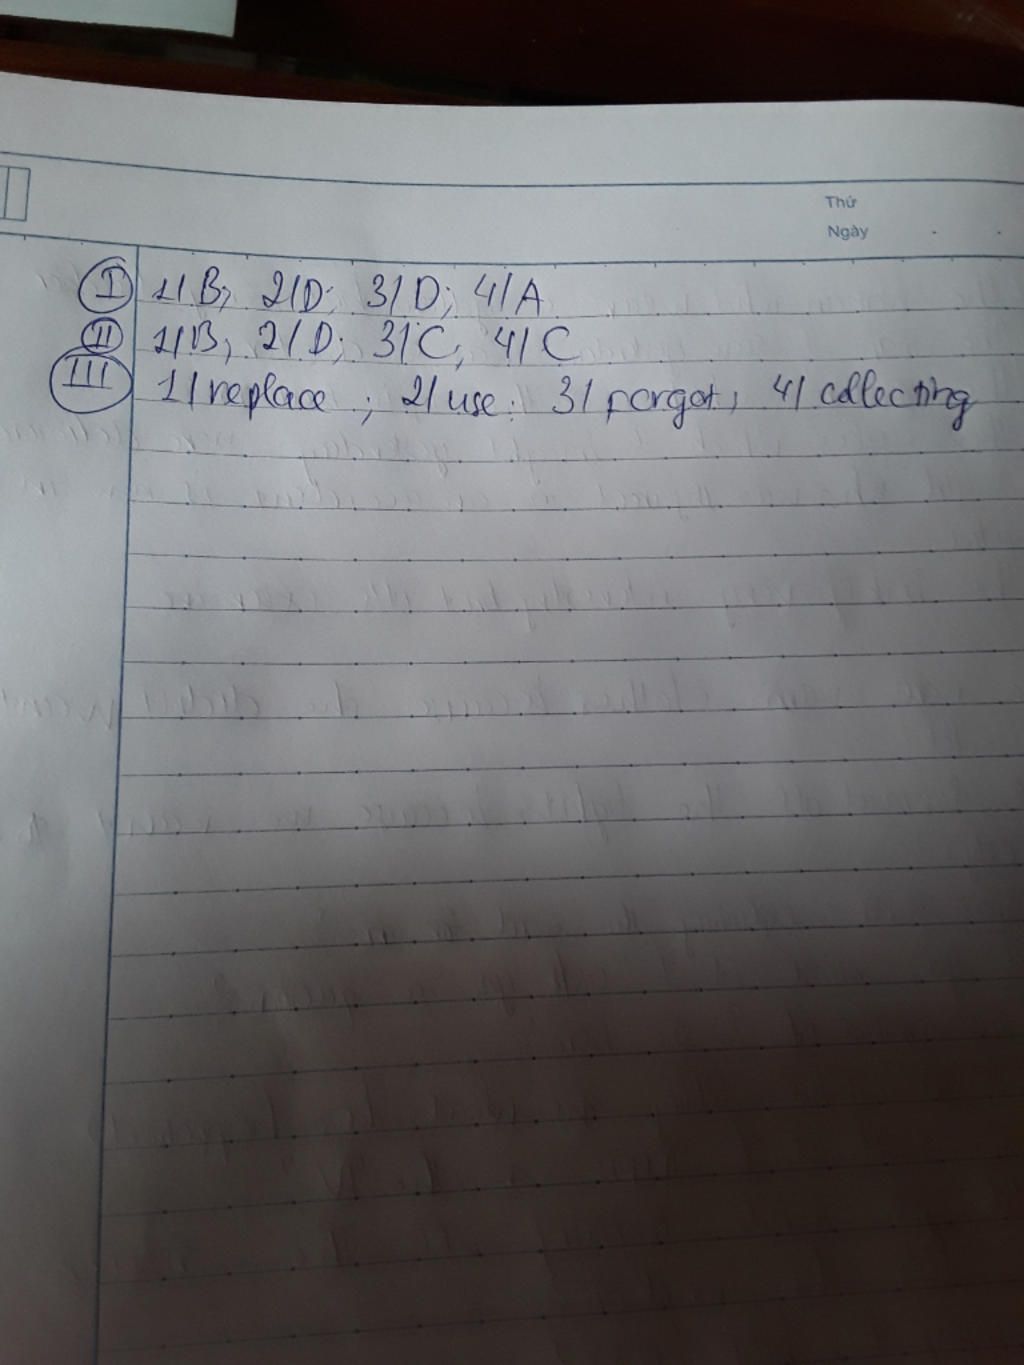 Thứ
Ngày
I 1/ B; 2/ D; 3/ D; 4/ A
II 1/ B; 2/ D; 3/ C; 4/ C
III 1/ replace ; 2/ use; 3/ forgot; 4/ collecting